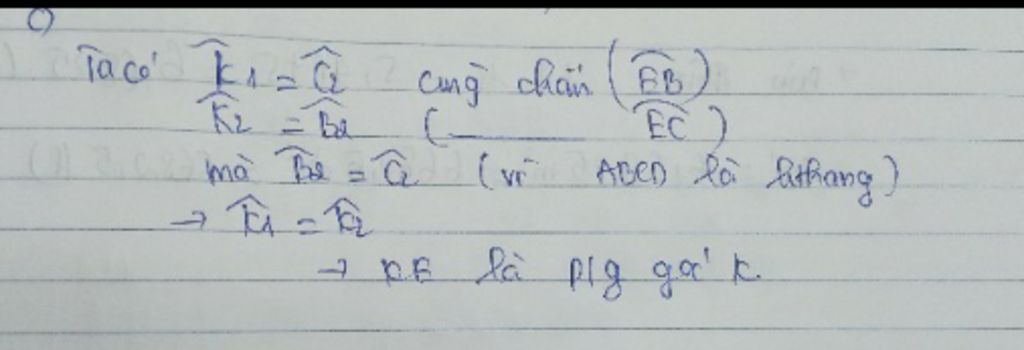 c)
Ta có K̂1 = Ĉ2 cùng chắn (EB)
K̂2 = B̂2 ( ____ EC )
mà B̂2 = Ĉ2 (vì ABCD là hthang)
→ K̂1 = K̂2
→ KE là p/g góc K.